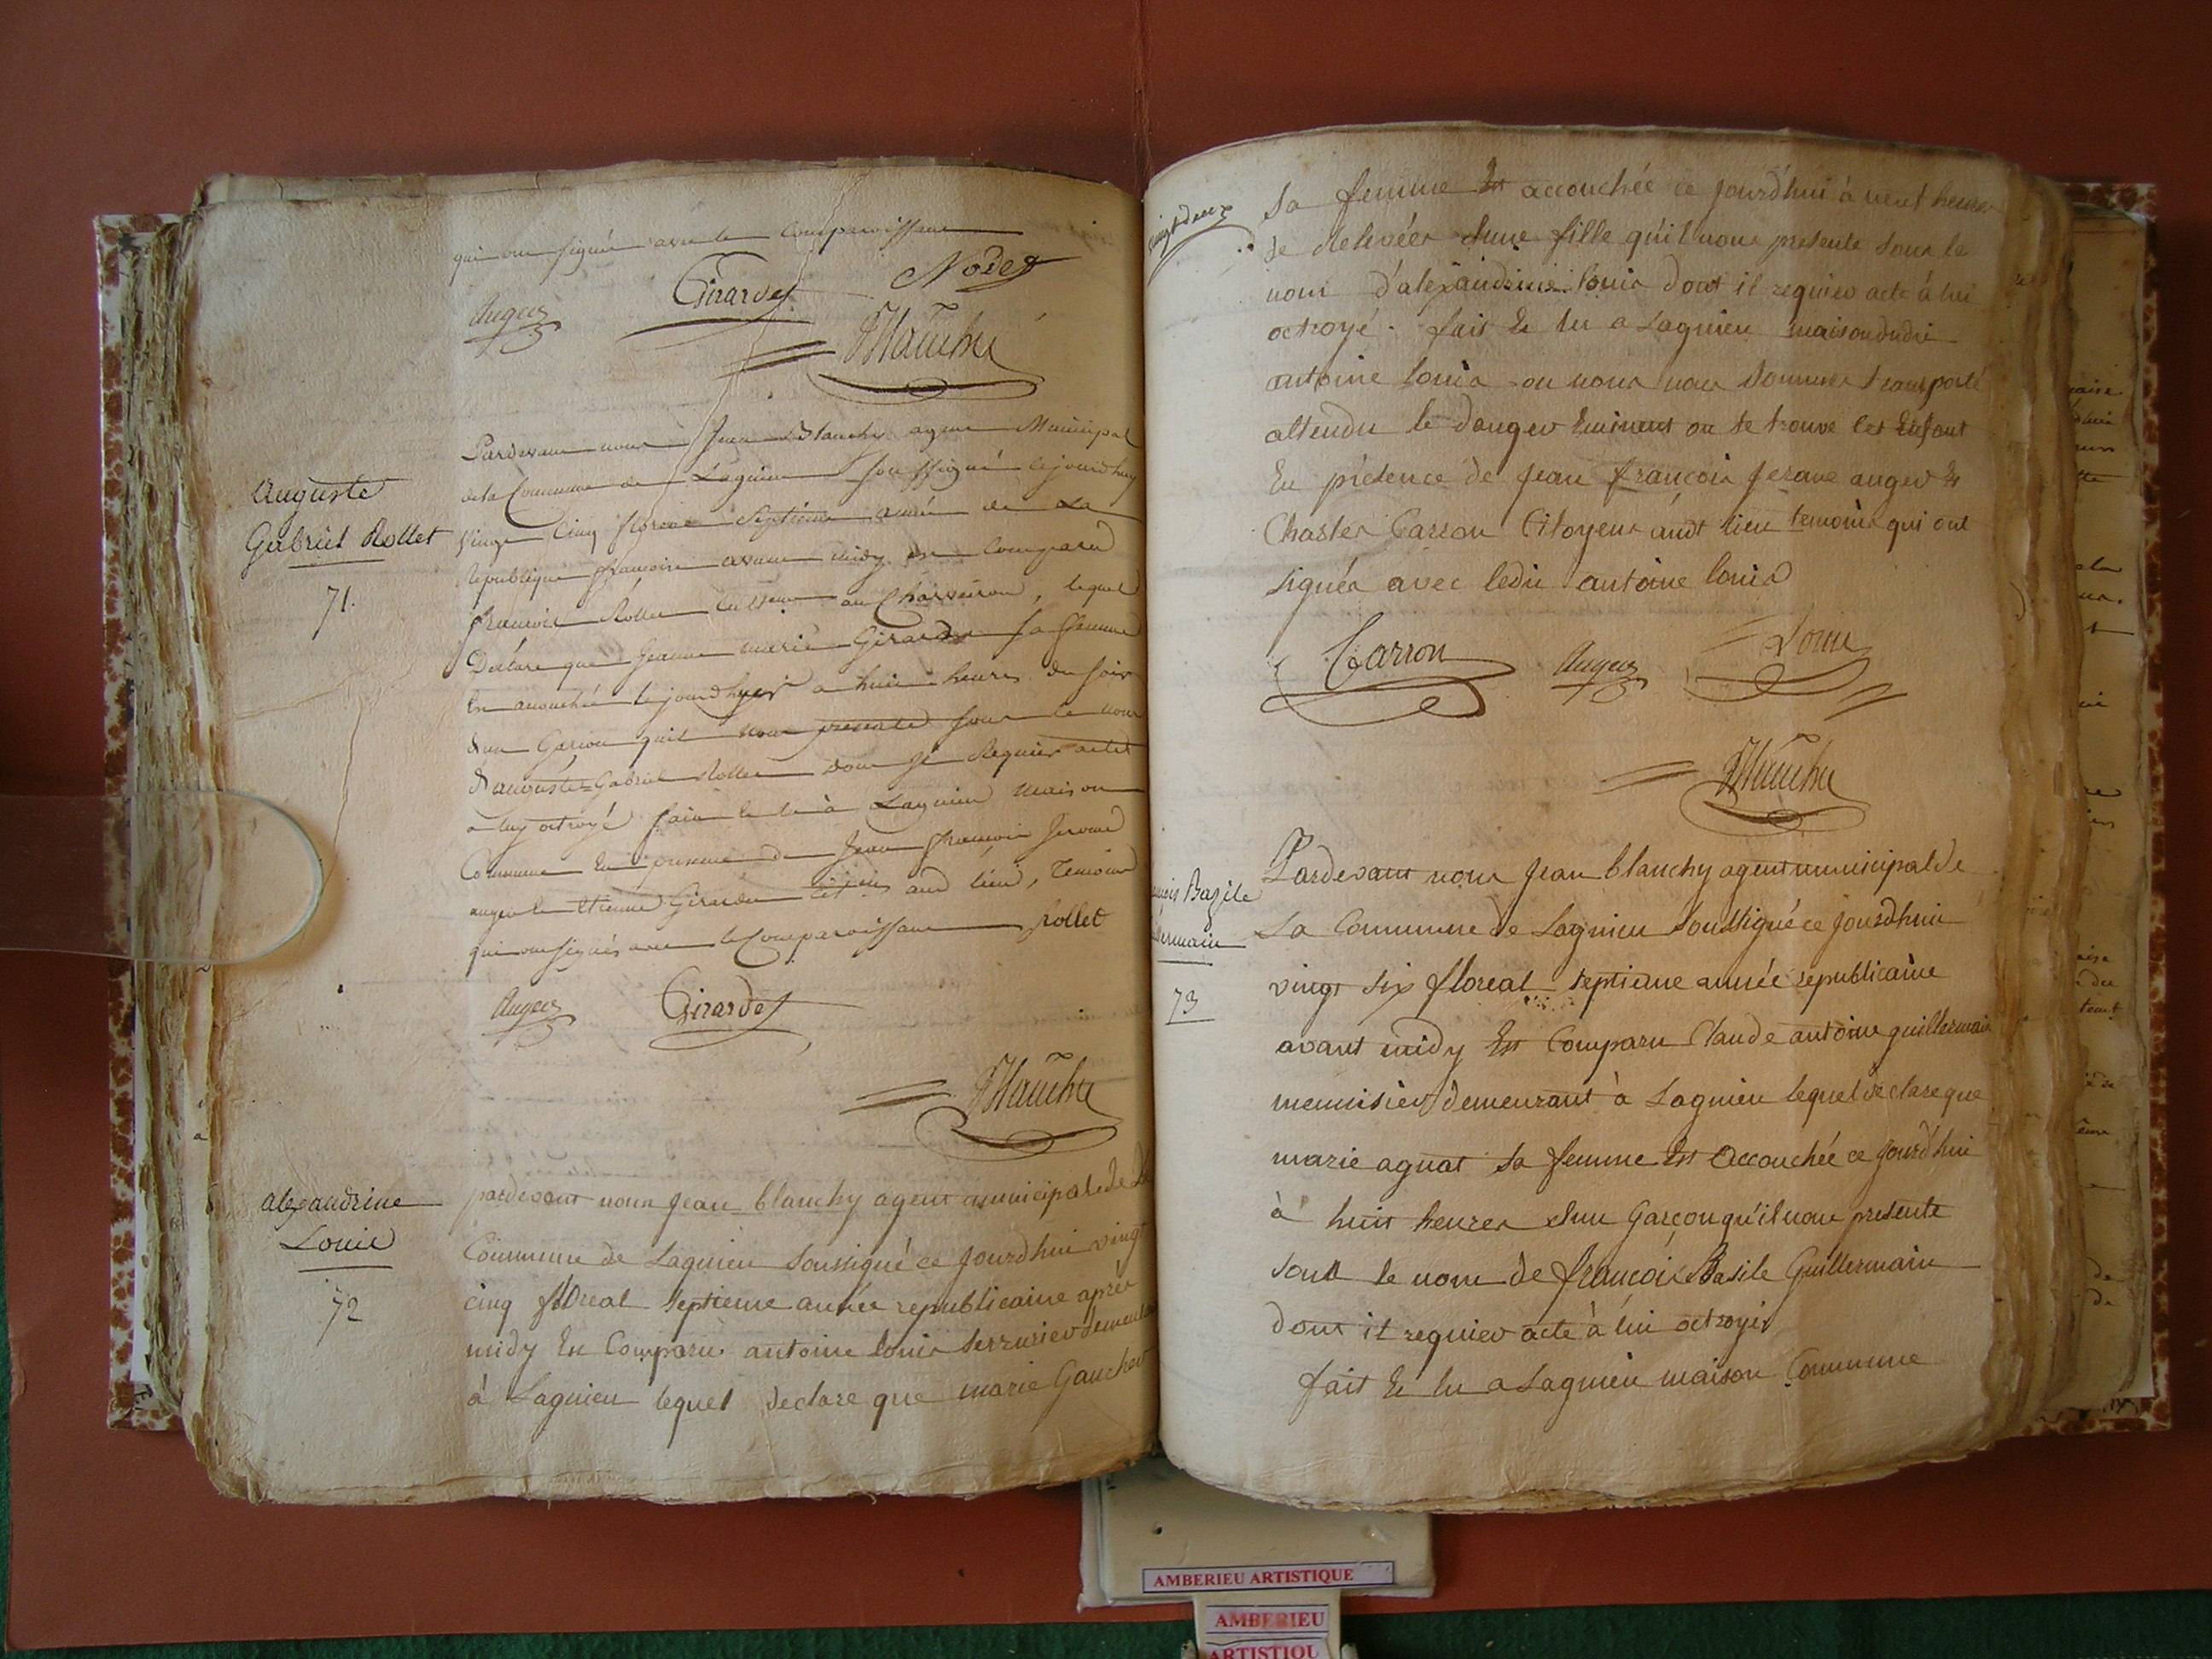 qui ont signés avec le Comparoissant
Nodet
Girardet
Auger
Blanchi
Auguste
Gabriel Rollet
71.
Pardevant nous Jean Blanchy agent Municipal
de la Commune de Lagnieu soussigné cejourdhuy
vingt Cinq floreal Septieme année de La
Republique francoise avant midy est Comparu
francois Rollet au Charveiron, lequel
Déclare que Jeanne marie Girardet sa femme
Est accouchée le jourdhyer a huit heures du soir
dun Garcon quil nous presente sous le nom
d'auguste Gabriel Rollet dont Il Requier acte
a luy octroyé fait et lu à Lagnieu Maison
Commune En presence de Jean francois Jerome
auger et etienne Girardet aud lieu, Temoins
qui ont signés avec le Comparoissant Rollet
Auger Girardet
Blanchi
alexandrine
Louis
72
pardevant nous Jean blanchy agent municipal de La
Commune de Lagnieu soussigné ce jourdhui vingt
cinq floreal septieme année republicaine après
midy Est Comparu antoine louis serrurier demeurant
à Lagnieu lequel declare que marie Gaucher
vingt deux
sa femme Est accouchée ce jourd'hui à heures
de relevées d'une fille qu'il nous presente sous le
nom d'alexandrine louis dont il requier acte à lui
octroyé. fait Et lu a Lagnieu maison dudit
antoine louis ou nous nous sommes transporté
attendu le danger Eminent ou se trouve cet Enfant
En présence de Jean françois Jerome auger Et
Charles Carron Citoyens audt lieu temoins qui ont
signés avec ledit antoine louis
Carron Auger Louis
Blanchi
Bazile
73
Pardevant nous Jean blanchy agent municipal de
La Commune de Lagnieu soussigné ce jourdhui
vingt six floreal septieme année republicaine
avant midy Est Comparu Claude antoine guillermain
menuisier demeurant à Lagnieu lequel declare que
marie agnat sa femme Est accouchée ce jourd'hui
à huit heures d'un Garçon qu'il nous presente
sous le nom de françois Basile Guillermain
dont il requier acte à lui octroyé
fait Et lu a Lagnieu maison Commune
AMBERIEU ARTISTIQUE
AMBERIEU
ARTISTIQU